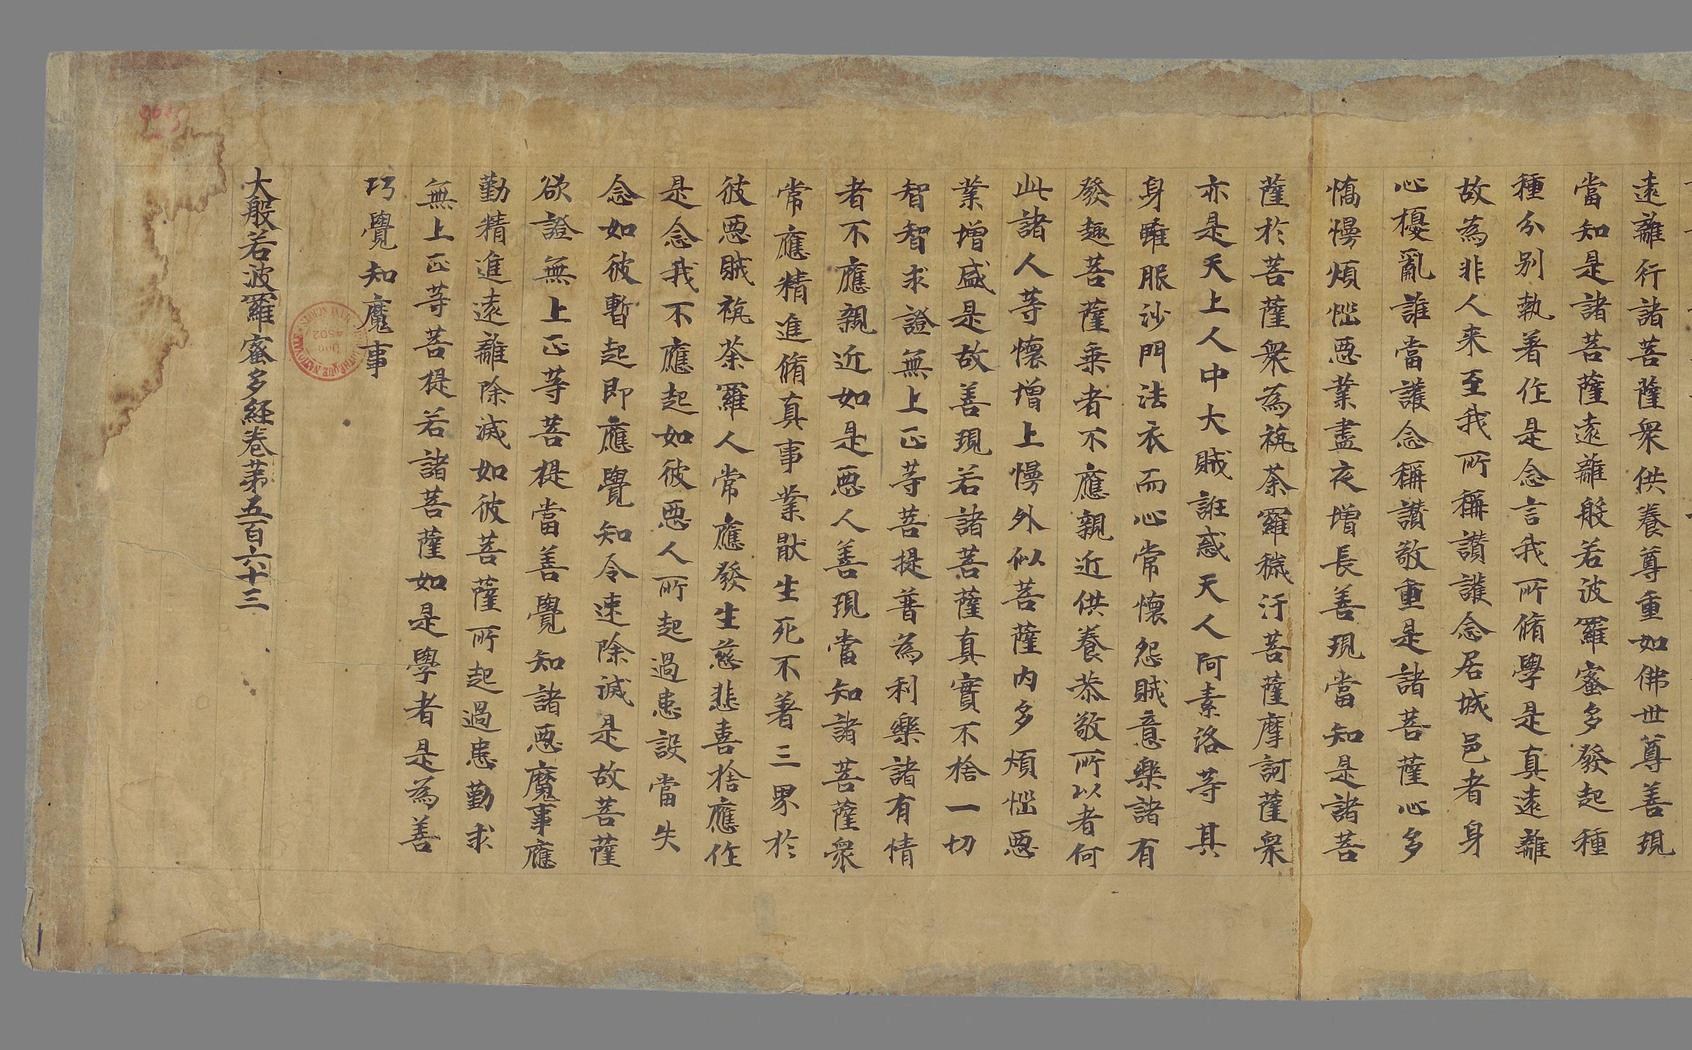 遠離行諸菩薩衆供養尊重如佛世尊善現
當知是諸菩薩遠離般若波羅蜜多發起種
種分別執著作是念言我所脩學是真遠離
故為非人来至我所稱讃護念居城邑者身
心擾亂誰當護念稱讃敬重是諸菩薩心多
憍慢煩惱惡業晝夜增長善現當知是諸菩
薩於菩薩衆為旃荼羅穢汙菩薩摩訶薩衆
亦是天上人中大賊誑惑天人阿素洛等其
身雖服沙門法衣而心常懷怨賊意樂諸有
發趣菩薩乘者不應親近供養恭敬所以者何
此諸人等懷增上慢外似菩薩内多煩惱惡
業增盛是故善現若諸菩薩真實不捨一切
智智求證無上正等菩提普為利樂諸有情
者不應親近如是惡人善現當知諸菩薩衆
常應精進脩真事業猒生死不著三界於
彼惡賊旃荼羅人常應發生慈悲喜捨應作
是念我不應起如彼惡人所起過患設當失
念如彼暫起即應覺知令速除滅是故菩薩
欲證無上正等菩提當善覺知諸惡魔事應
勤精進遠離除滅如彼菩薩所起過患勤求
無上正等菩提若諸菩薩如是學者是為善
巧覺知魔事
大般若波羅蜜多經卷第五百六十三